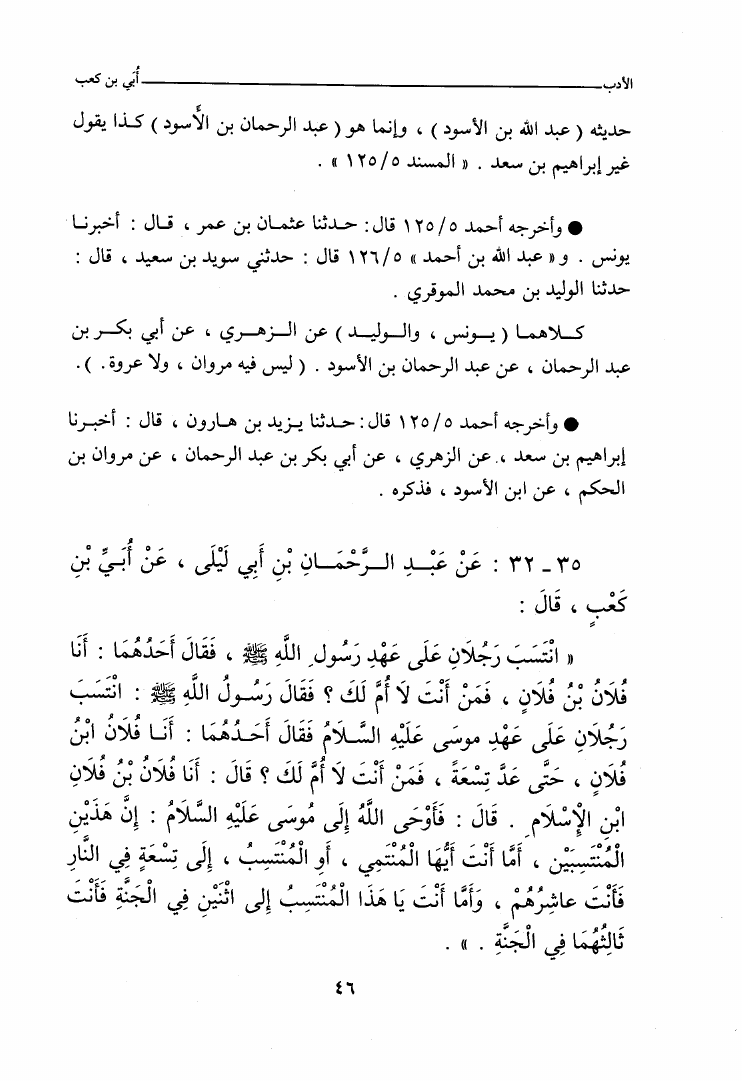 الأدب ـــــــ أُبَي بن كعب
حديثه ( عبد الله بن الأسود ) ، وإنما هو ( عبد الرحمان بن الأسود ) كـذا يقول
غير إبراهيم بن سعد . « المسند ١٢٥/٥ » .
● وأخرجه أحمد ١٢٥/٥ قال : حـدثنا عثمـان بن عمر ، قـال : أخبرنـا
يونس . و« عبد الله بن أحمد » ١٢٦/٥ قال : حدثني سويد بن سعيد ، قال :
حدثنا الوليد بن محمد الموقري .
كـلاهمـا ( يـونس ، والـوليـد ) عن الـزهـري ، عن أبي بكـر بن
عبد الرحمان ، عن عبد الرحمان بن الأسود . ( ليس فيه مروان ، ولا عروة . ) .
● وأخرجه أحمد ١٢٥/٥ قال : حـدثنا يـزيد بن هـارون ، قال : أخبـرنا
إبراهيم بن سعد ، عن الزهري ، عن أبي بكر بن عبد الرحمان ، عن مروان بن
الحكم ، عن ابن الأسود ، فذكره .
٣٥ ـ ٣٢ : عَنْ عَبْـدِ الـرَّحْمَـانِ بْنِ أَبِي لَيْلَى ، عَنْ أُبَـيِّ بْنِ
كَعْبٍ ، قَالَ :
« انْتَسَبَ رَجُلَانِ عَلَى عَهْدِ رَسُولِ اللَّهِ ﷺ ، فَقَالَ أَحَدُهُمَا : أَنَا
فُلَانُ بْنُ فُلَانٍ ، فَمَنْ أَنْتَ لَا أُمَّ لَكَ ؟ فَقَالَ رَسُـولُ اللَّهِ ﷺ : انْتَسَبَ
رَجُلَانِ عَلَى عَهْدِ موسَى عَلَيْهِ السَّـلَامُ فَقَالَ أَحَـدُهُمَا : أَنَـا فُلَانُ ابْنُ
فُلَانٍ ، حَتَّى عَدَّ تِسْعَةً ، فَمَنْ أَنْتَ لَا أُمَّ لَكَ ؟ قَالَ : أَنَا فُلَانُ بْنُ فُلَانِ
ابْنِ الْإِسْلَامِ . قَالَ : فَأَوْحَى اللَّهُ إِلَى مُوسَى عَلَيْهِ السَّلَامُ : إِنَّ هَذَيْنِ
الْمُنْتَسِبَيْنِ ، أَمَّا أَنْتَ أَيُّهَا الْمُنْتَمِي ، أَوِ الْمُنْتَسِبُ ، إِلَى تِسْعَةٍ فِي النَّارِ
فَأَنْتَ عاشِرُهُمْ ، وَأَمَّا أَنْتَ يَا هَذَا الْمُنْتَسِبُ إِلى اثْنَيْنِ فِي الْجَنَّةِ فَأَنْتَ
ثَالِثُهُمَا فِي الْجَنَّةِ . » .
٤٦